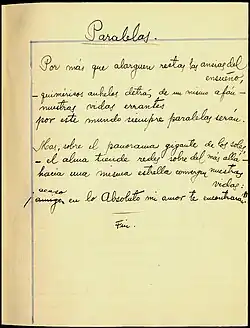 Paralelas.
Por más que alarguen rectas las ansias del
ensueño,
quiméricos anhelos detrás de un mismo afán
nuestras vidas errantes
por este mundo siempre paralelas serán.
Mas, sobre el panorama gigante de los soles
el alma tiende redes sobre del más allá
hacia una misma estrella convergen nuestras
vidas:
acaso
¡amiga, en lo Absoluto mi amor te encontrará!
Fin.